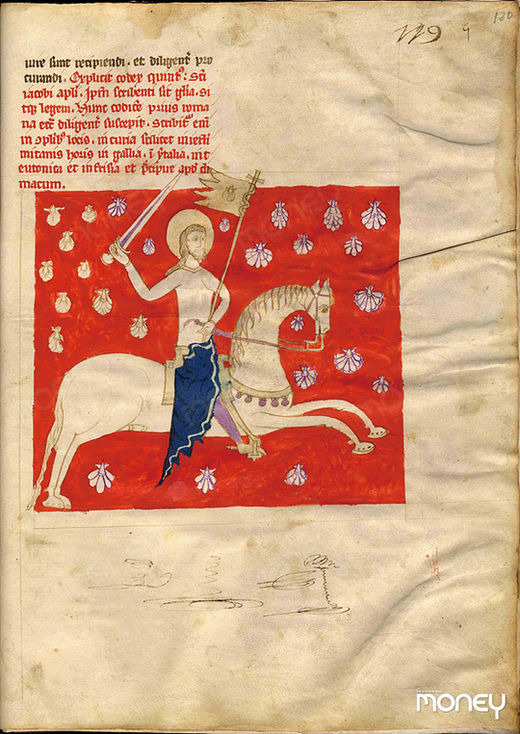 119
120
iure sunt recipiendi . et diligent pro
curandi . Explicit codex quint9 : sci
iacobi apli . Ipsu scribenti sit gla . si
tq; legeti . Hunc codice prius roma
na eccl diligent suscepit . Scribit eni
in oplib9 locis . in curia scilicet
mitanis horis in gallia . i ytalia . in t
eutonica et in frisia et pcipue apd clu
niacum .
MONEY